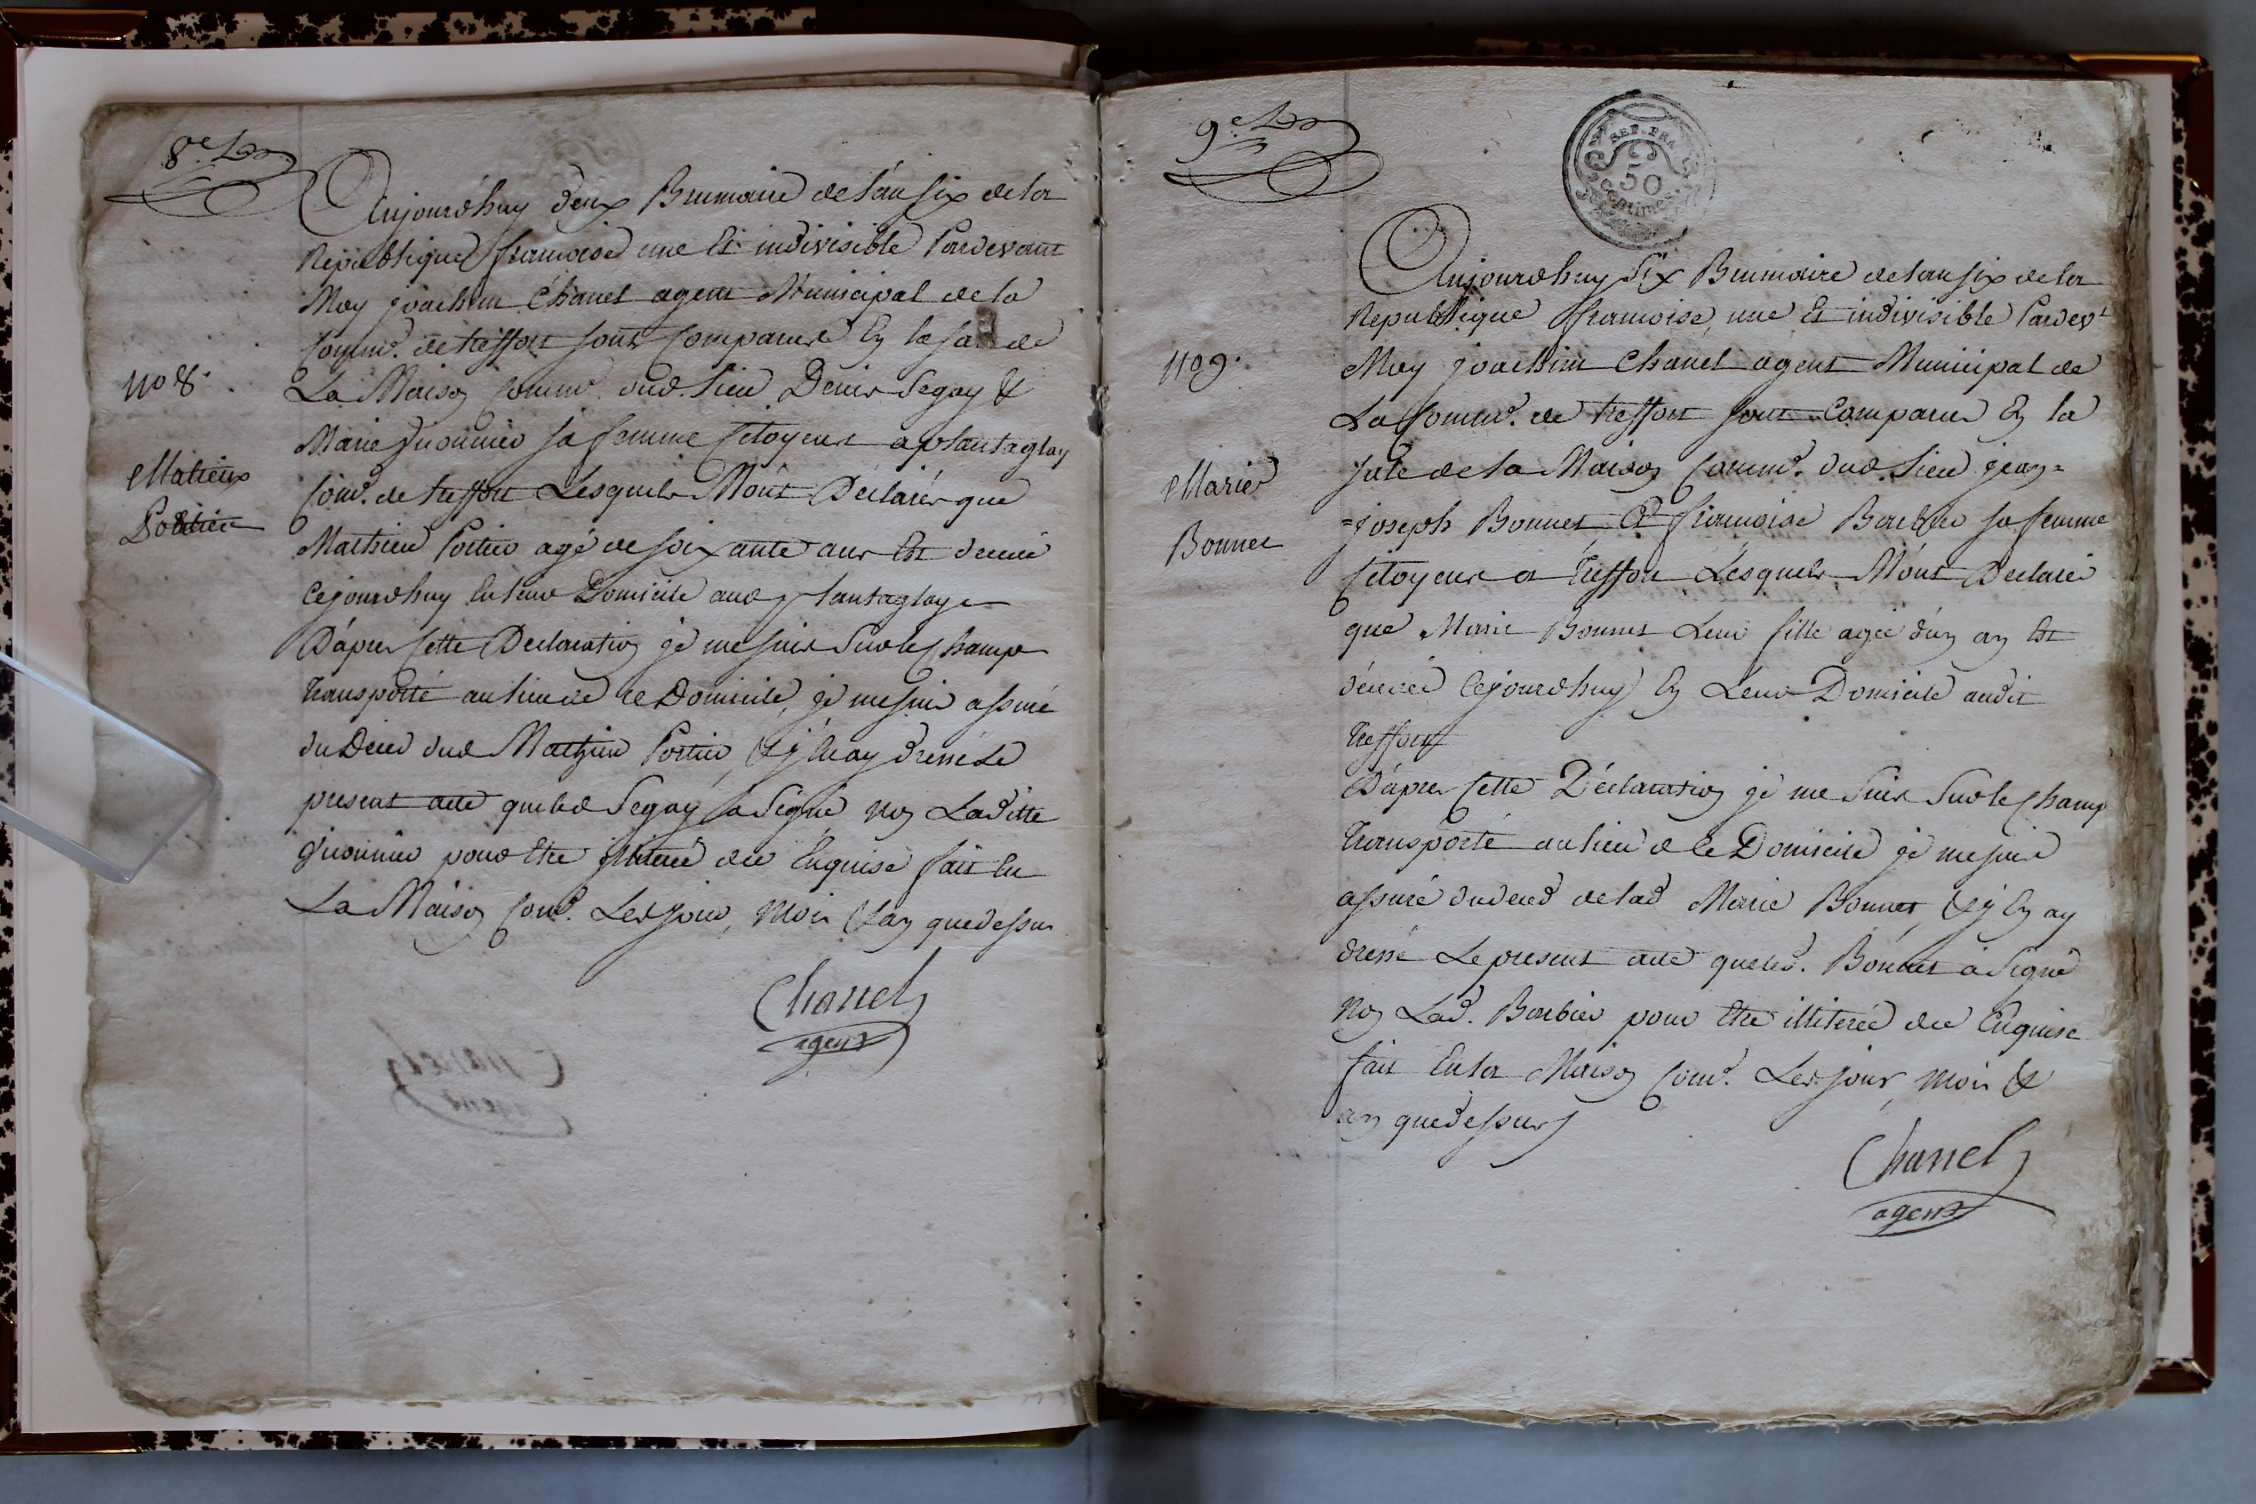 8e
Aujourd'huy deux Brumaire de l'an six de la
Republique françoise une Et indivisible Pardevant
Moy joachim Chanel agent Municipal de la
Comm.e de treffort sont Comparus En la sale de
La Maison Comm.e dud. lieu Denis Segay &
Marie sa femme Citoyens a plantaglay
Com.e de treffort Lesquels M'ont Déclarés que
Mathieu Poitier agé de soixante ans Est décédé
Cejourd'huy En leur Domicile aud plantaglay
D'après Cette Declaration je me suis sur le Champ
transporté au lieu de ce Domicile, je me suis assuré
du Décès dud Mathieu Poitier, & j'En ay dressé Le
present acte que led Segay a Signé non Laditte
pour être illiterée de ce Enquise fait En
La Maison Com.e Les jour, Mois & an que dessus
Chanel
agent
no 8.
Matieux
Poitier
9e
REP. FRA.
50
centimes
Aujourd'huy Six Brumaire de l'an six de la
Republique françoise, une Et indivisible Pardevt
Moy joachim Chanel agent Municipal de
La Comm.e de treffort sont Comparus En la
sale de la Maison Comm.e dud. lieu jean=
=joseph Bonnet & françoise Barbier sa femme
Citoyens a treffort Lesquels M'ont Declaré
que Marie Bonnet Leur fille agée d'un an Est
décédée Cejourd'huy En Leur Domicile audit
treffort
D'après Cette Déclaration je me suis Sur le Champ
transporté au lieu de ce Domicile je me suis
assuré du deces de lad Marie Bonnet, & j'En ay
dressé Le present acte que led. Bonnet a Signé
non Lad. Barbier pour être illiterée de ce Enquise
fait En la Maison Com.e Les jour, Mois &
an que dessus
Chanel
agent
no 9.
Marie
Bonnet